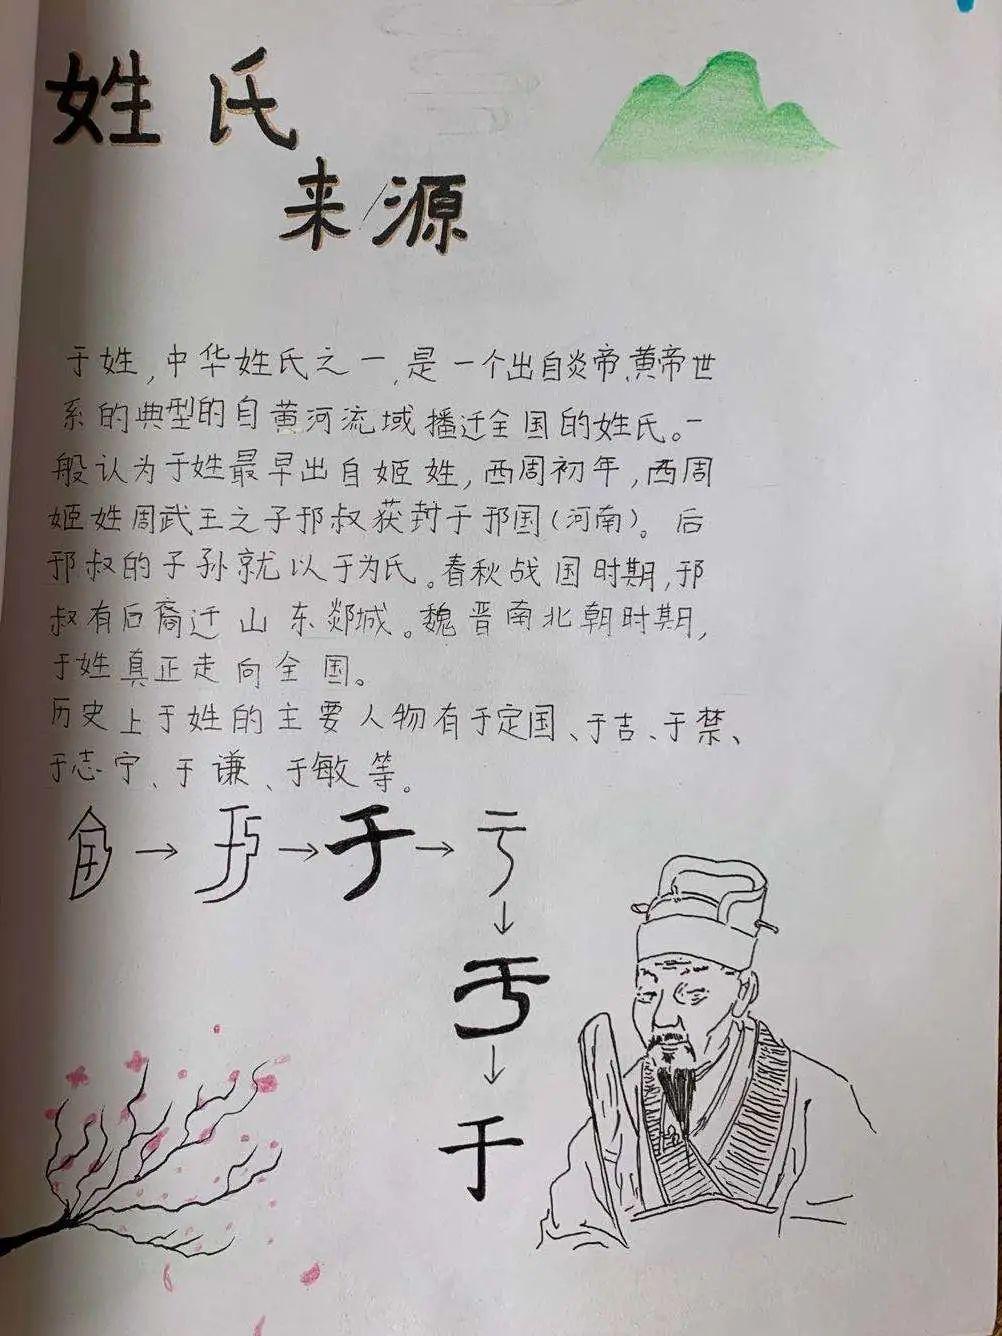 姓氏
来源
于姓,中华姓氏之一,是一个出自炎帝、黄帝世
系的典型的自黄河流域播迁全国的姓氏。一
般认为于姓最早出自姬姓,西周初年,西周
姬姓周武王之子邘叔获封于邘国(河南)。后
邘叔的子孙就以于为氏。春秋战国时期,邘
叔有后裔迁山东郯城。魏晋南北朝时期,
于姓真正走向全国。
历史上于姓的主要人物有于定国、于吉、于禁、
于志宁、于谦、于敏等。
→ → 于 → 亏
↓
亐
↓
于